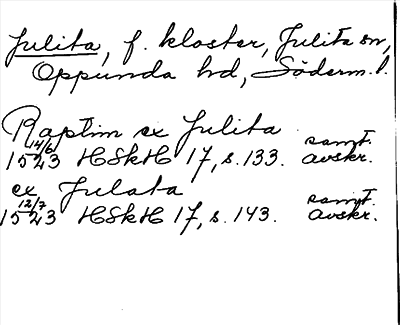 Julita, f. kloster, Julita sn,
Oppunda hd, Söderm. l.
Raptim ex Julita
14/6 1523 HSkH 17, s. 133. samt. avskr.
ex Julata
12/7 1523 HSkH 17, s. 143. samt. avskr.